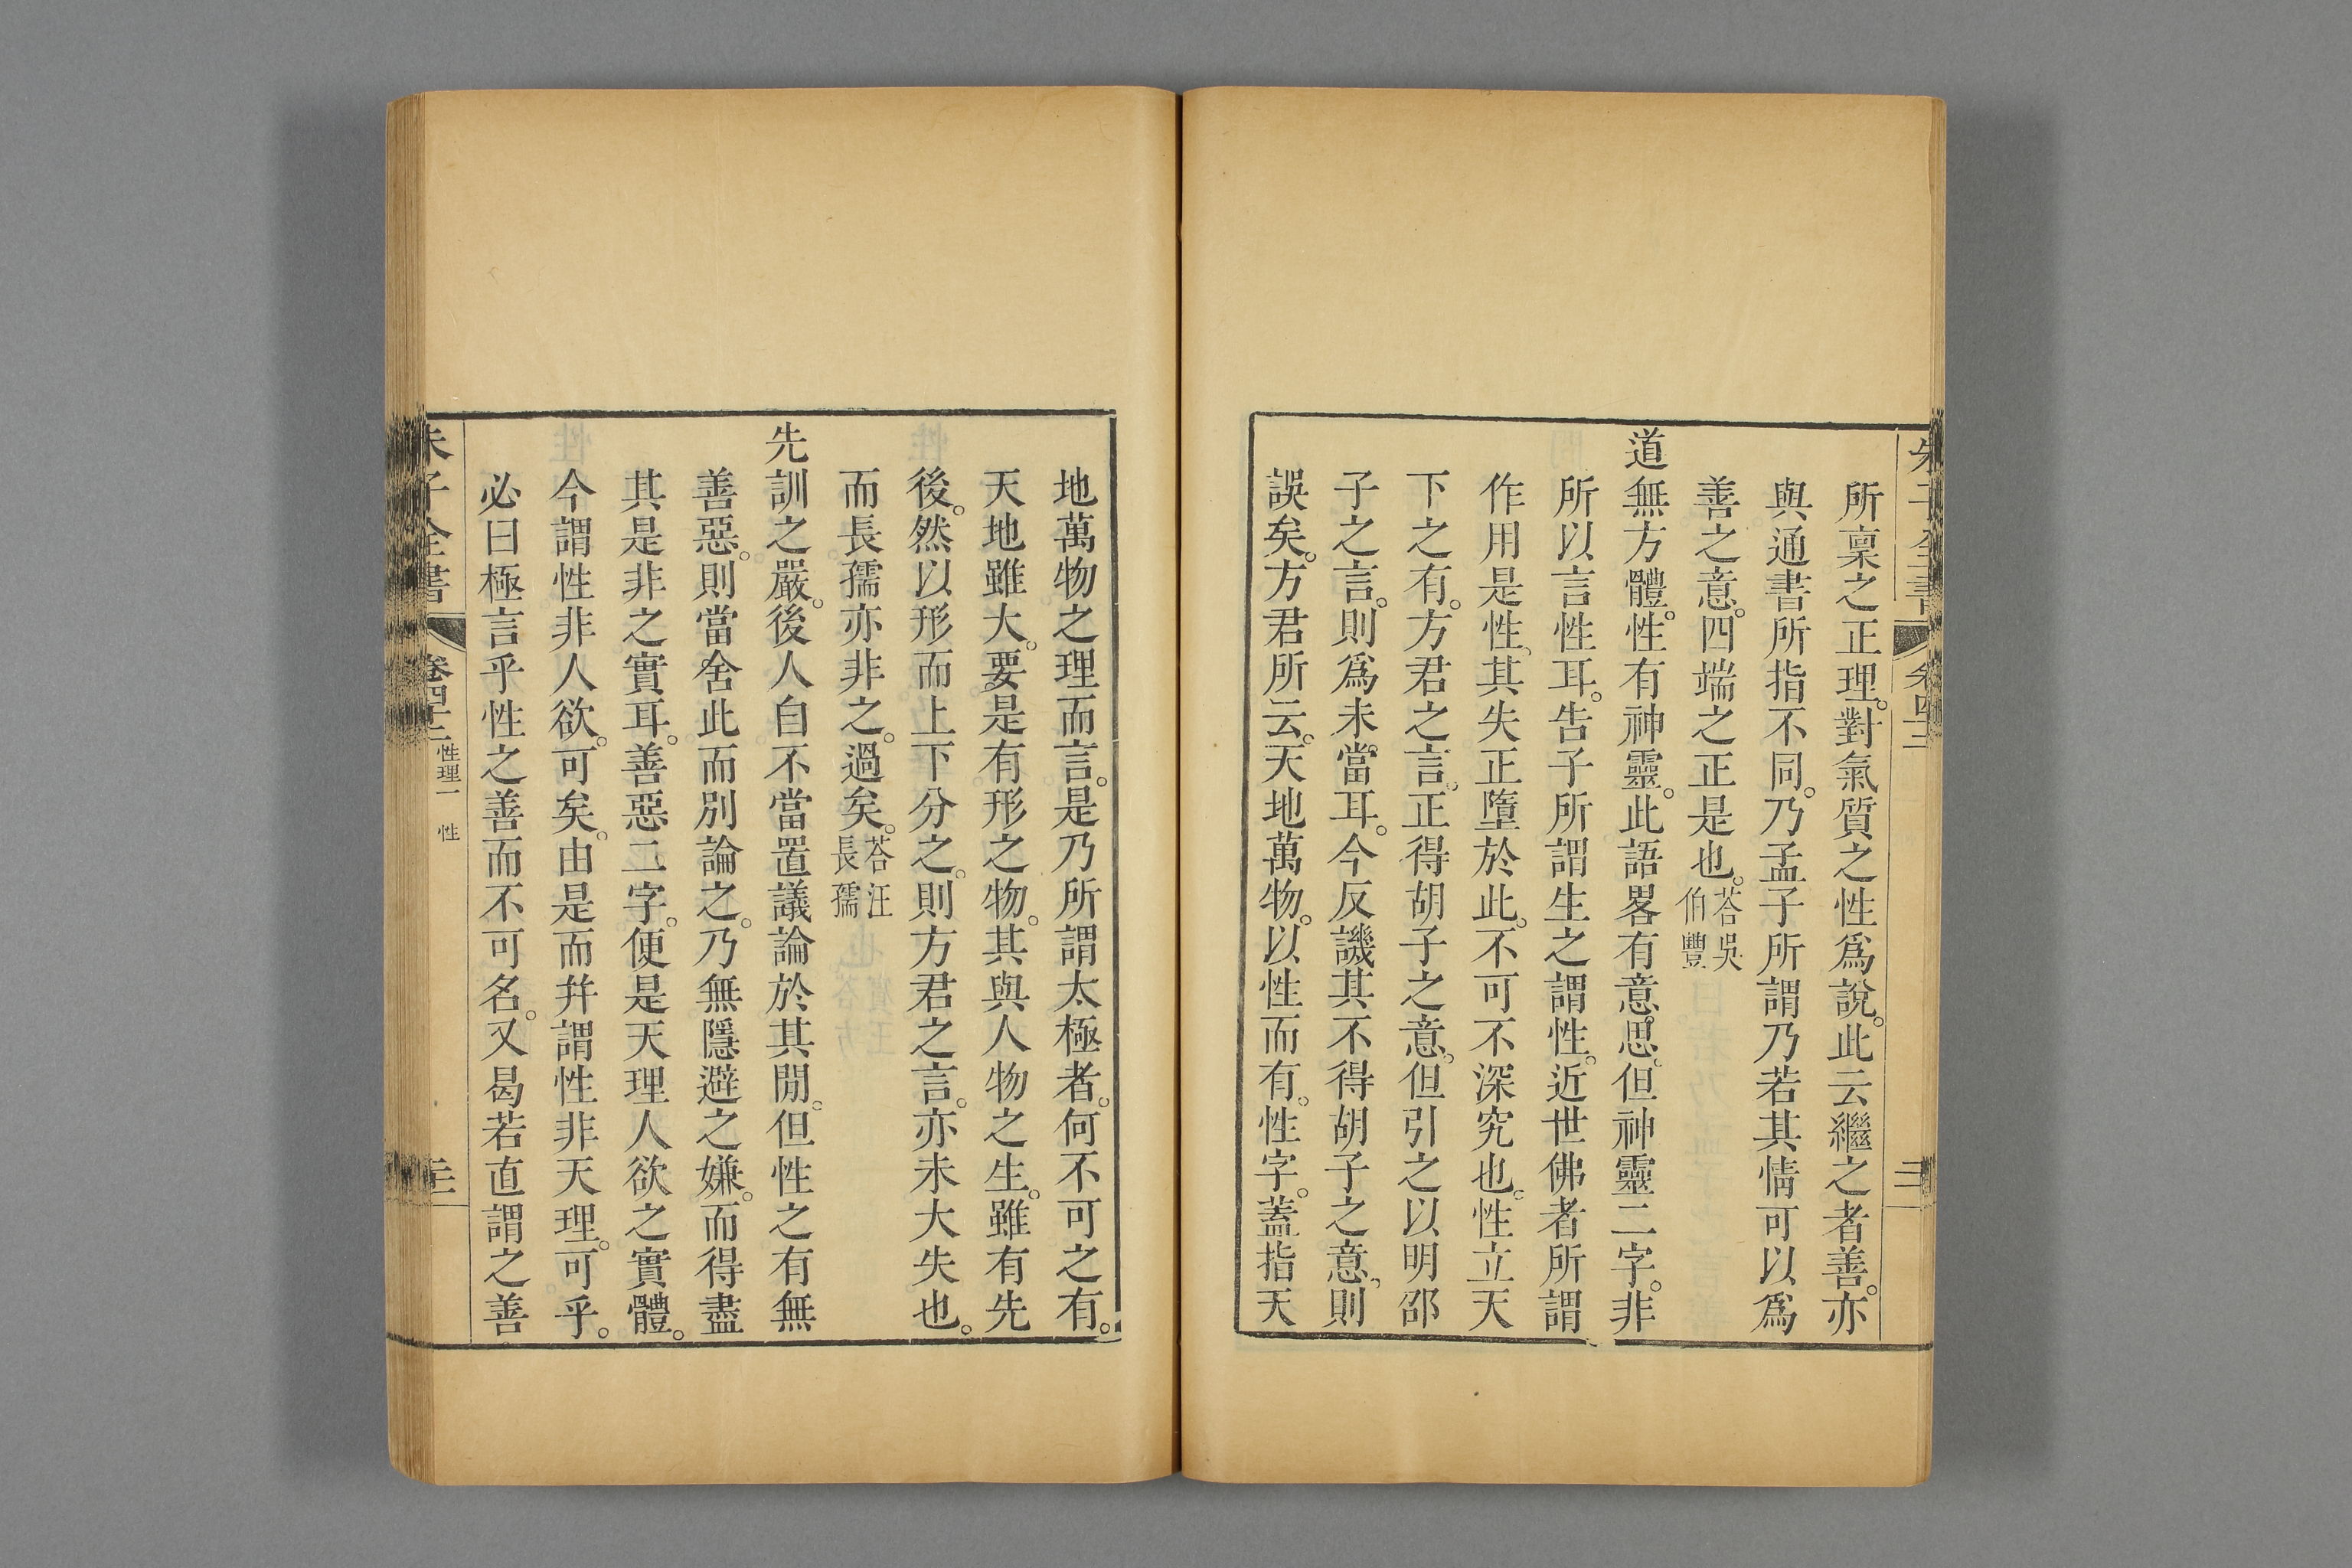 所稟之正理。對氣質之性爲說。此云繼之者善。亦
與通書所指不同。乃孟子所謂乃若其情可以爲
善之意。四端之正是也。荅吳伯豐
道無方體。性有神靈。此語畧有意思。但神靈二字。非
所以言性耳。告子所謂生之謂性。近世佛者所謂
作用是性。其失正墮於此。不可不深究也。性立天
下之有。方君之言。正得胡子之意。但引之以明邵
子之言。則爲未當耳。今反譏其不得胡子之意。則
誤矣。方君所云。天地萬物。以性而有。性字。蓋指天
地萬物之理而言。是乃所謂太極者。何不可之有。
天地雖大。要是有形之物。其與人物之生。雖有先
後。然以形而上下分之。則方君之言。亦未大失也。
而長孺亦非之。過矣。荅汪長孺
先訓之嚴。後人自不當置議論於其閒。但性之有無
善惡。則當舍此而別論之。乃無隱避之嫌。而得盡
其是非之實耳。善惡二字。便是天理人欲之實體。
今謂性非人欲。可矣。由是而幷謂性非天理。可乎。
必曰極言乎性之善而不可名。又曷若直謂之善
朱子全書
卷四十二
性理一 性